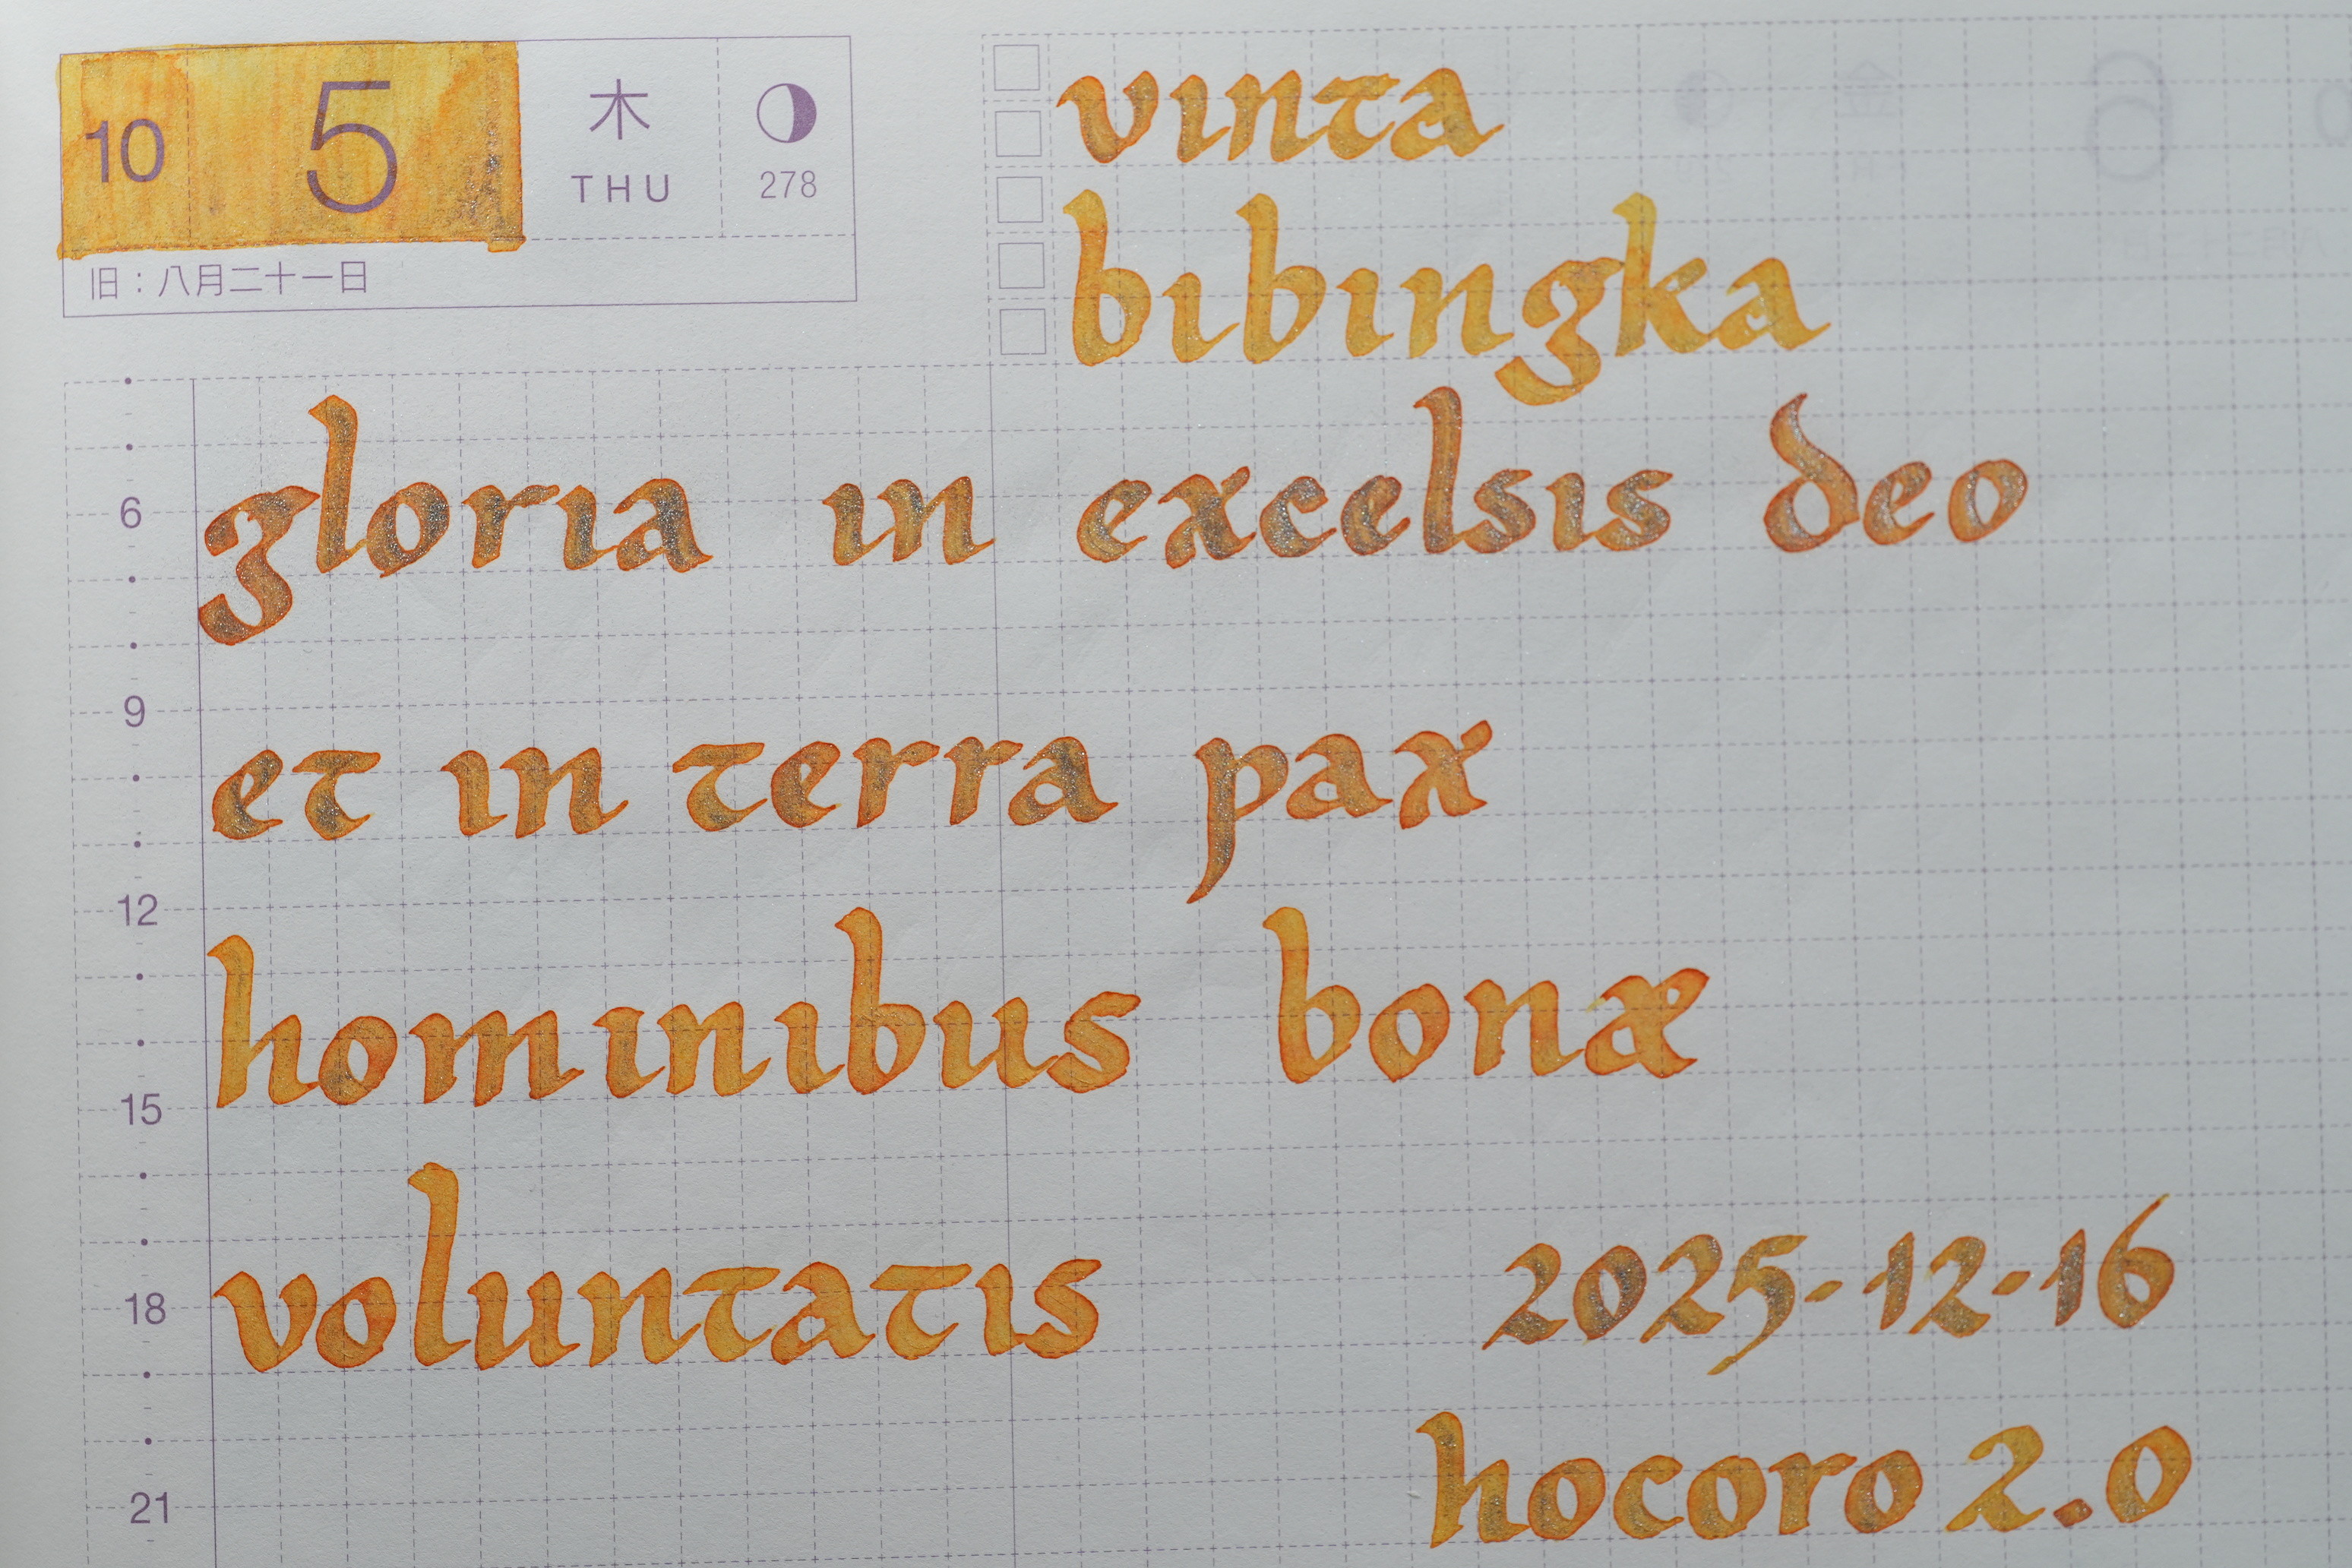 10 5 木 THU 278
旧：八月二十一日
vinta
bibingka
gloria in excelsis deo
6
et in terra pax
9
12
hominibus bonæ
15
voluntatis
18
2025-12-16
hocoro 2.0
21